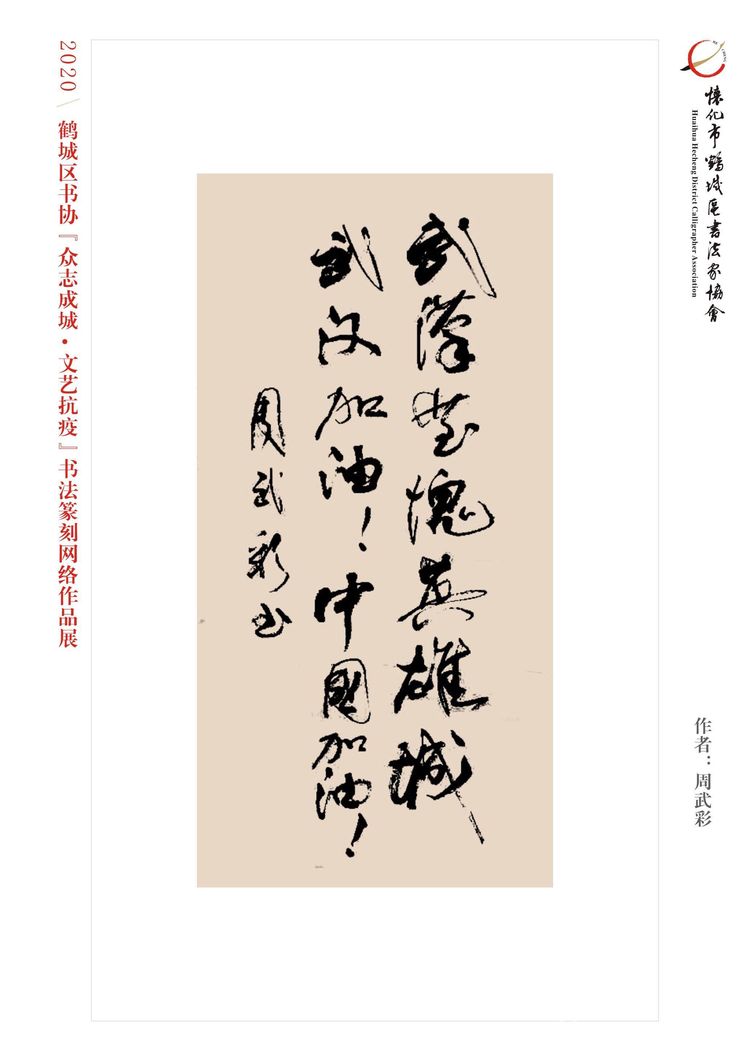 懷化市鶴城區書法家協會
Huaihua Hecheng District Calligrapher Association
作者：周武彩
武漢堂愧英雄城
武汉加油！中國加油！
周武彩书
2020 鹤城区书协『众志成城·文艺抗疫』书法篆刻网络作品展